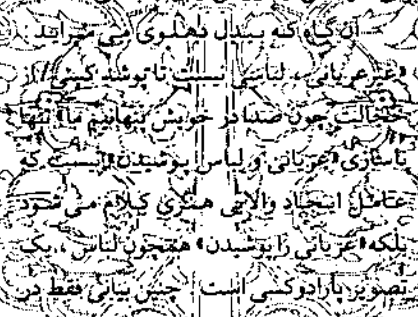 آن گاه که بیدل دهلوی می سراید:
«غیر عریانی، لباسی نیست تا پوشد کسی / از
خجالت چون صدا در خویش پنهانیم ما» تنها
ناسازی «عریانی و لباس پوشیدن» نیست که
عامل ایجاد والایی هنری کلام می شود
بلکه «عریانی را پوشیدن» همچون لباس، یک
تصویر پارادوکسی است. چنین بیانی فقط در